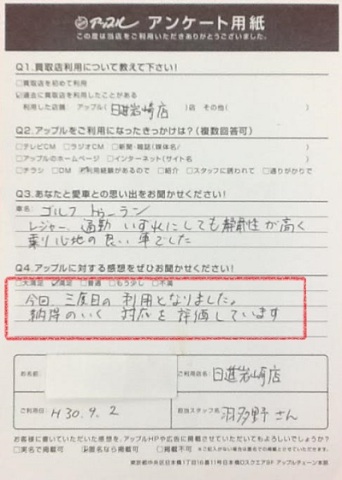 アップル アンケート用紙
この度は当店をご利用いただきありがとうございました。
Q1.買取店利用について教えて下さい!
□買取店を初めて利用
☑過去に買取店を利用したことがある
利用した店舗 アップル( 日進岩崎店 )店 その他( )
Q2.アップルをご利用になったきっかけは?(複数回答可)
□テレビCM □ラジオCM □新聞・雑誌(媒体名/ )
□アップルのホームページ □インターネット(サイト名 )
□チラシ □DM ☑利用経験があるので □紹介 □スタッフに誘われて □通りがかりで
Q3.あなたと愛車との思い出をお聞かせください!
車名: ゴルフ トゥーラン
レジャー、通勤 いずれにしても静粛性が高く
乗り心地の良い車でした
Q4.アップルに対する感想をぜひお聞かせください!
□大満足 ☑満足 □普通 □もう少し □不満
今回、三度目の利用となりました。
納得のいく 対応を評価しています
お名前:
ご利用店名: 日進岩崎店
ご利用日: H30.9.2
担当スタッフ名: 羽多野さん
お客様に書いていただいた感想を、アップルHPや広告に掲載させていただいてもよろしいでしょうか?
□実名で掲載可 ☑匿名なら掲載可 □掲載不可
東京都中央区日本橋1丁目16番11号日本橋DスクエアGF アップルチェーン本部